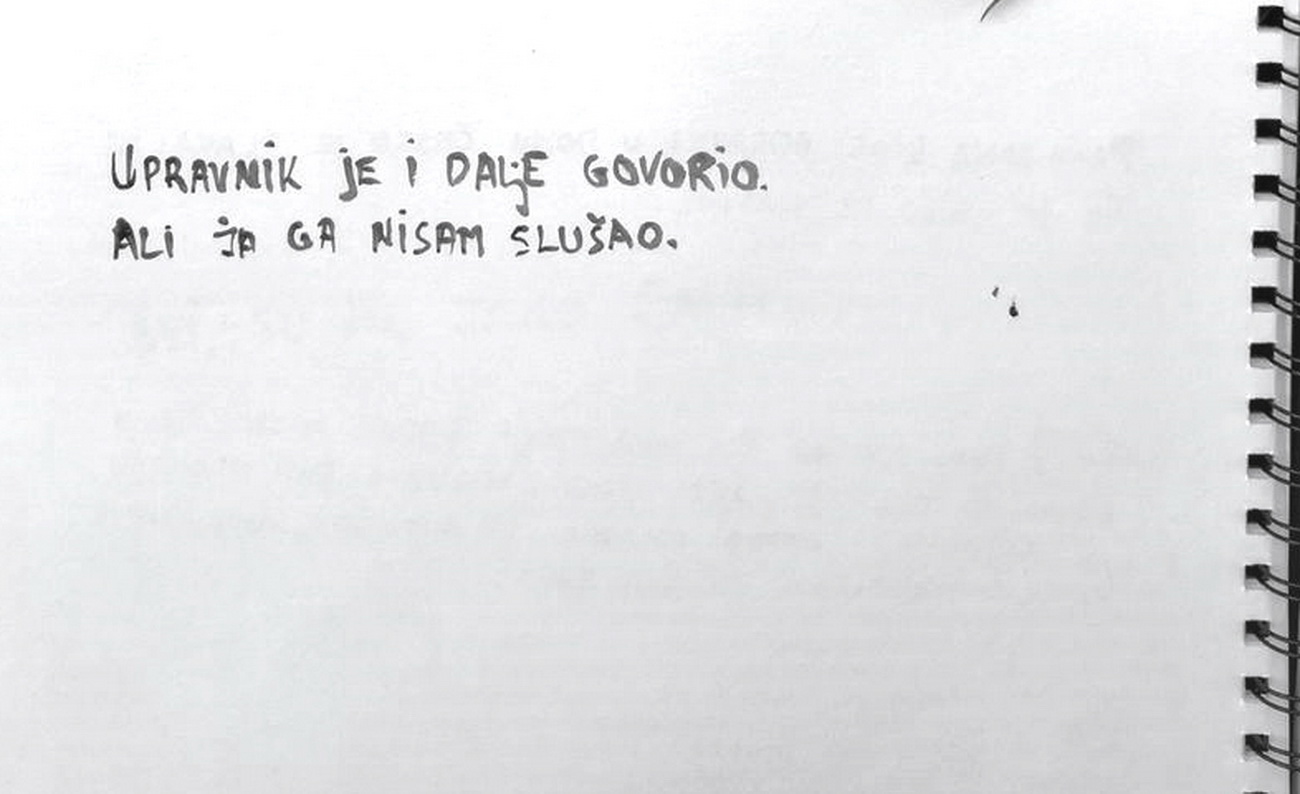 UPRAVNIK JE I DALJE GOVORIO.
ALI JA GA NISAM SLUŠAO.